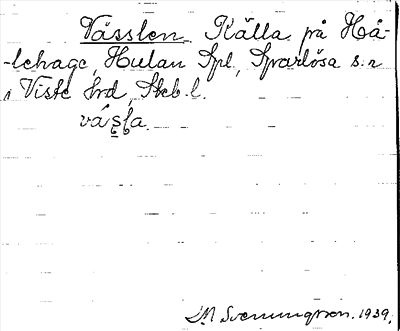 Vässlen Källa på Hå-
-lehage, Hulan Spl, Sparlösa s:n
i Viste hrd, Skb. l.
väsla
M Svenungsson. 1939.